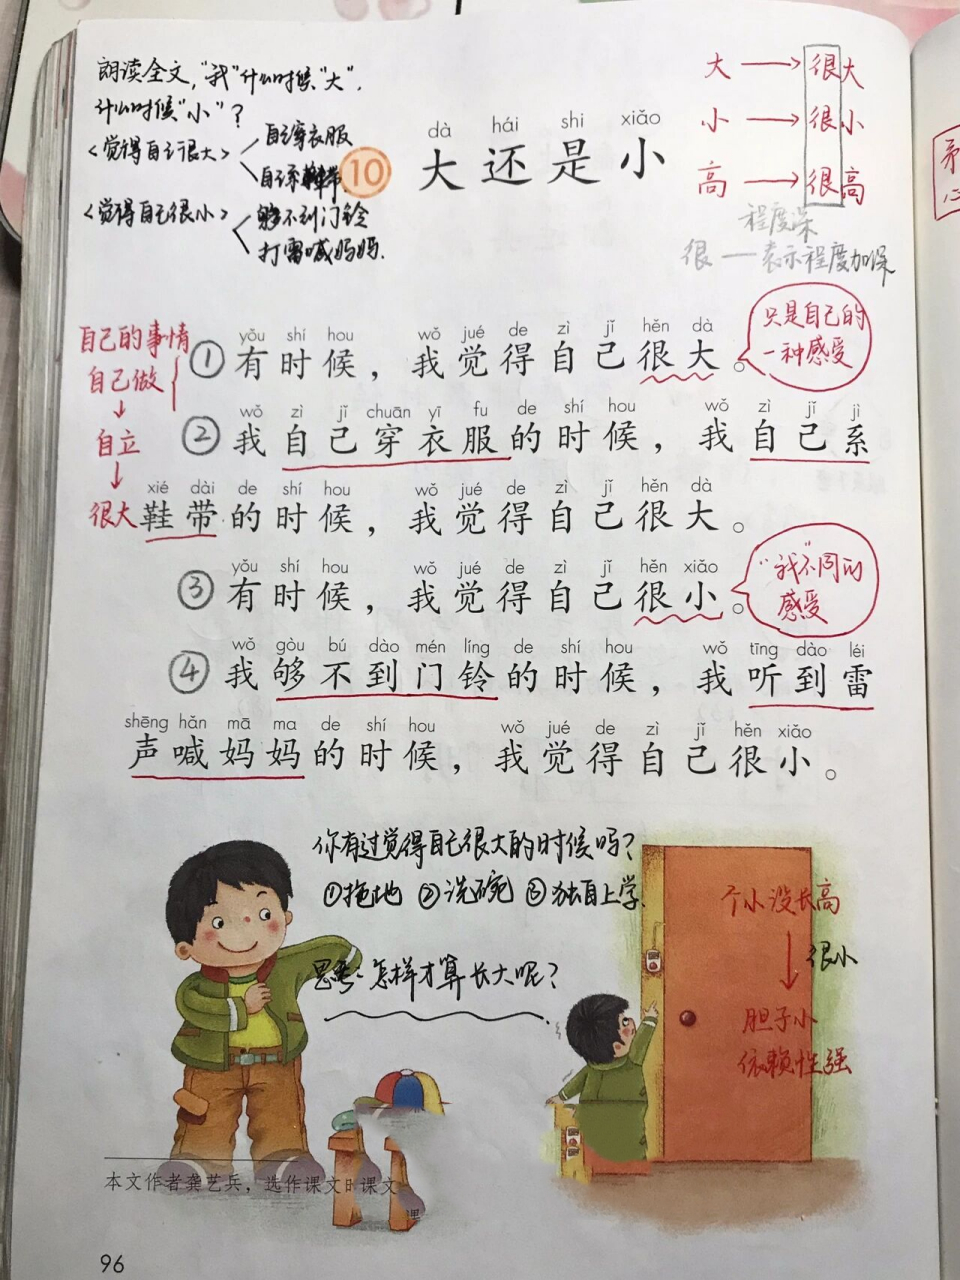 朗读全文,"我"什么时候"大",
什么时候"小"?
<觉得自己很大>
自己穿衣服
自己系鞋带
<觉得自己很小>
够不到门铃
打雷喊妈妈.
10
dà hái shi xiǎo
大还是小
大 → 很大
小 → 很小
高 → 很高
程度深
很 — 表示程度加深
自己的事情
自己做
↓
自立
↓
很大
yǒu shí hou wǒ jué de zì jǐ hěn dà
①有时候，我觉得自己很大。
只是自己的
一种感受
wǒ zì jǐ chuān yī fu de shí hou wǒ zì jǐ jì
②我自己穿衣服的时候，我自己系
xié dài de shí hou wǒ jué de zì jǐ hěn dà
鞋带的时候，我觉得自己很大。
yǒu shí hou wǒ jué de zì jǐ hěn xiǎo
③有时候，我觉得自己很小。
"我"不同的
感受
wǒ gòu bú dào mén líng de shí hou wǒ tīng dào léi
④我够不到门铃的时候，我听到雷
shēng hǎn mā ma de shí hou wǒ jué de zì jǐ hěn xiǎo
声喊妈妈的时候，我觉得自己很小。
你有过觉得自己很大的时候吗?
①拖地 ②洗碗 ③独自上学.
思考:怎样才算长大呢?
个小没长高
↓
很小
胆子小
依赖性强
本文作者龚艺兵，选作课文时课文
96